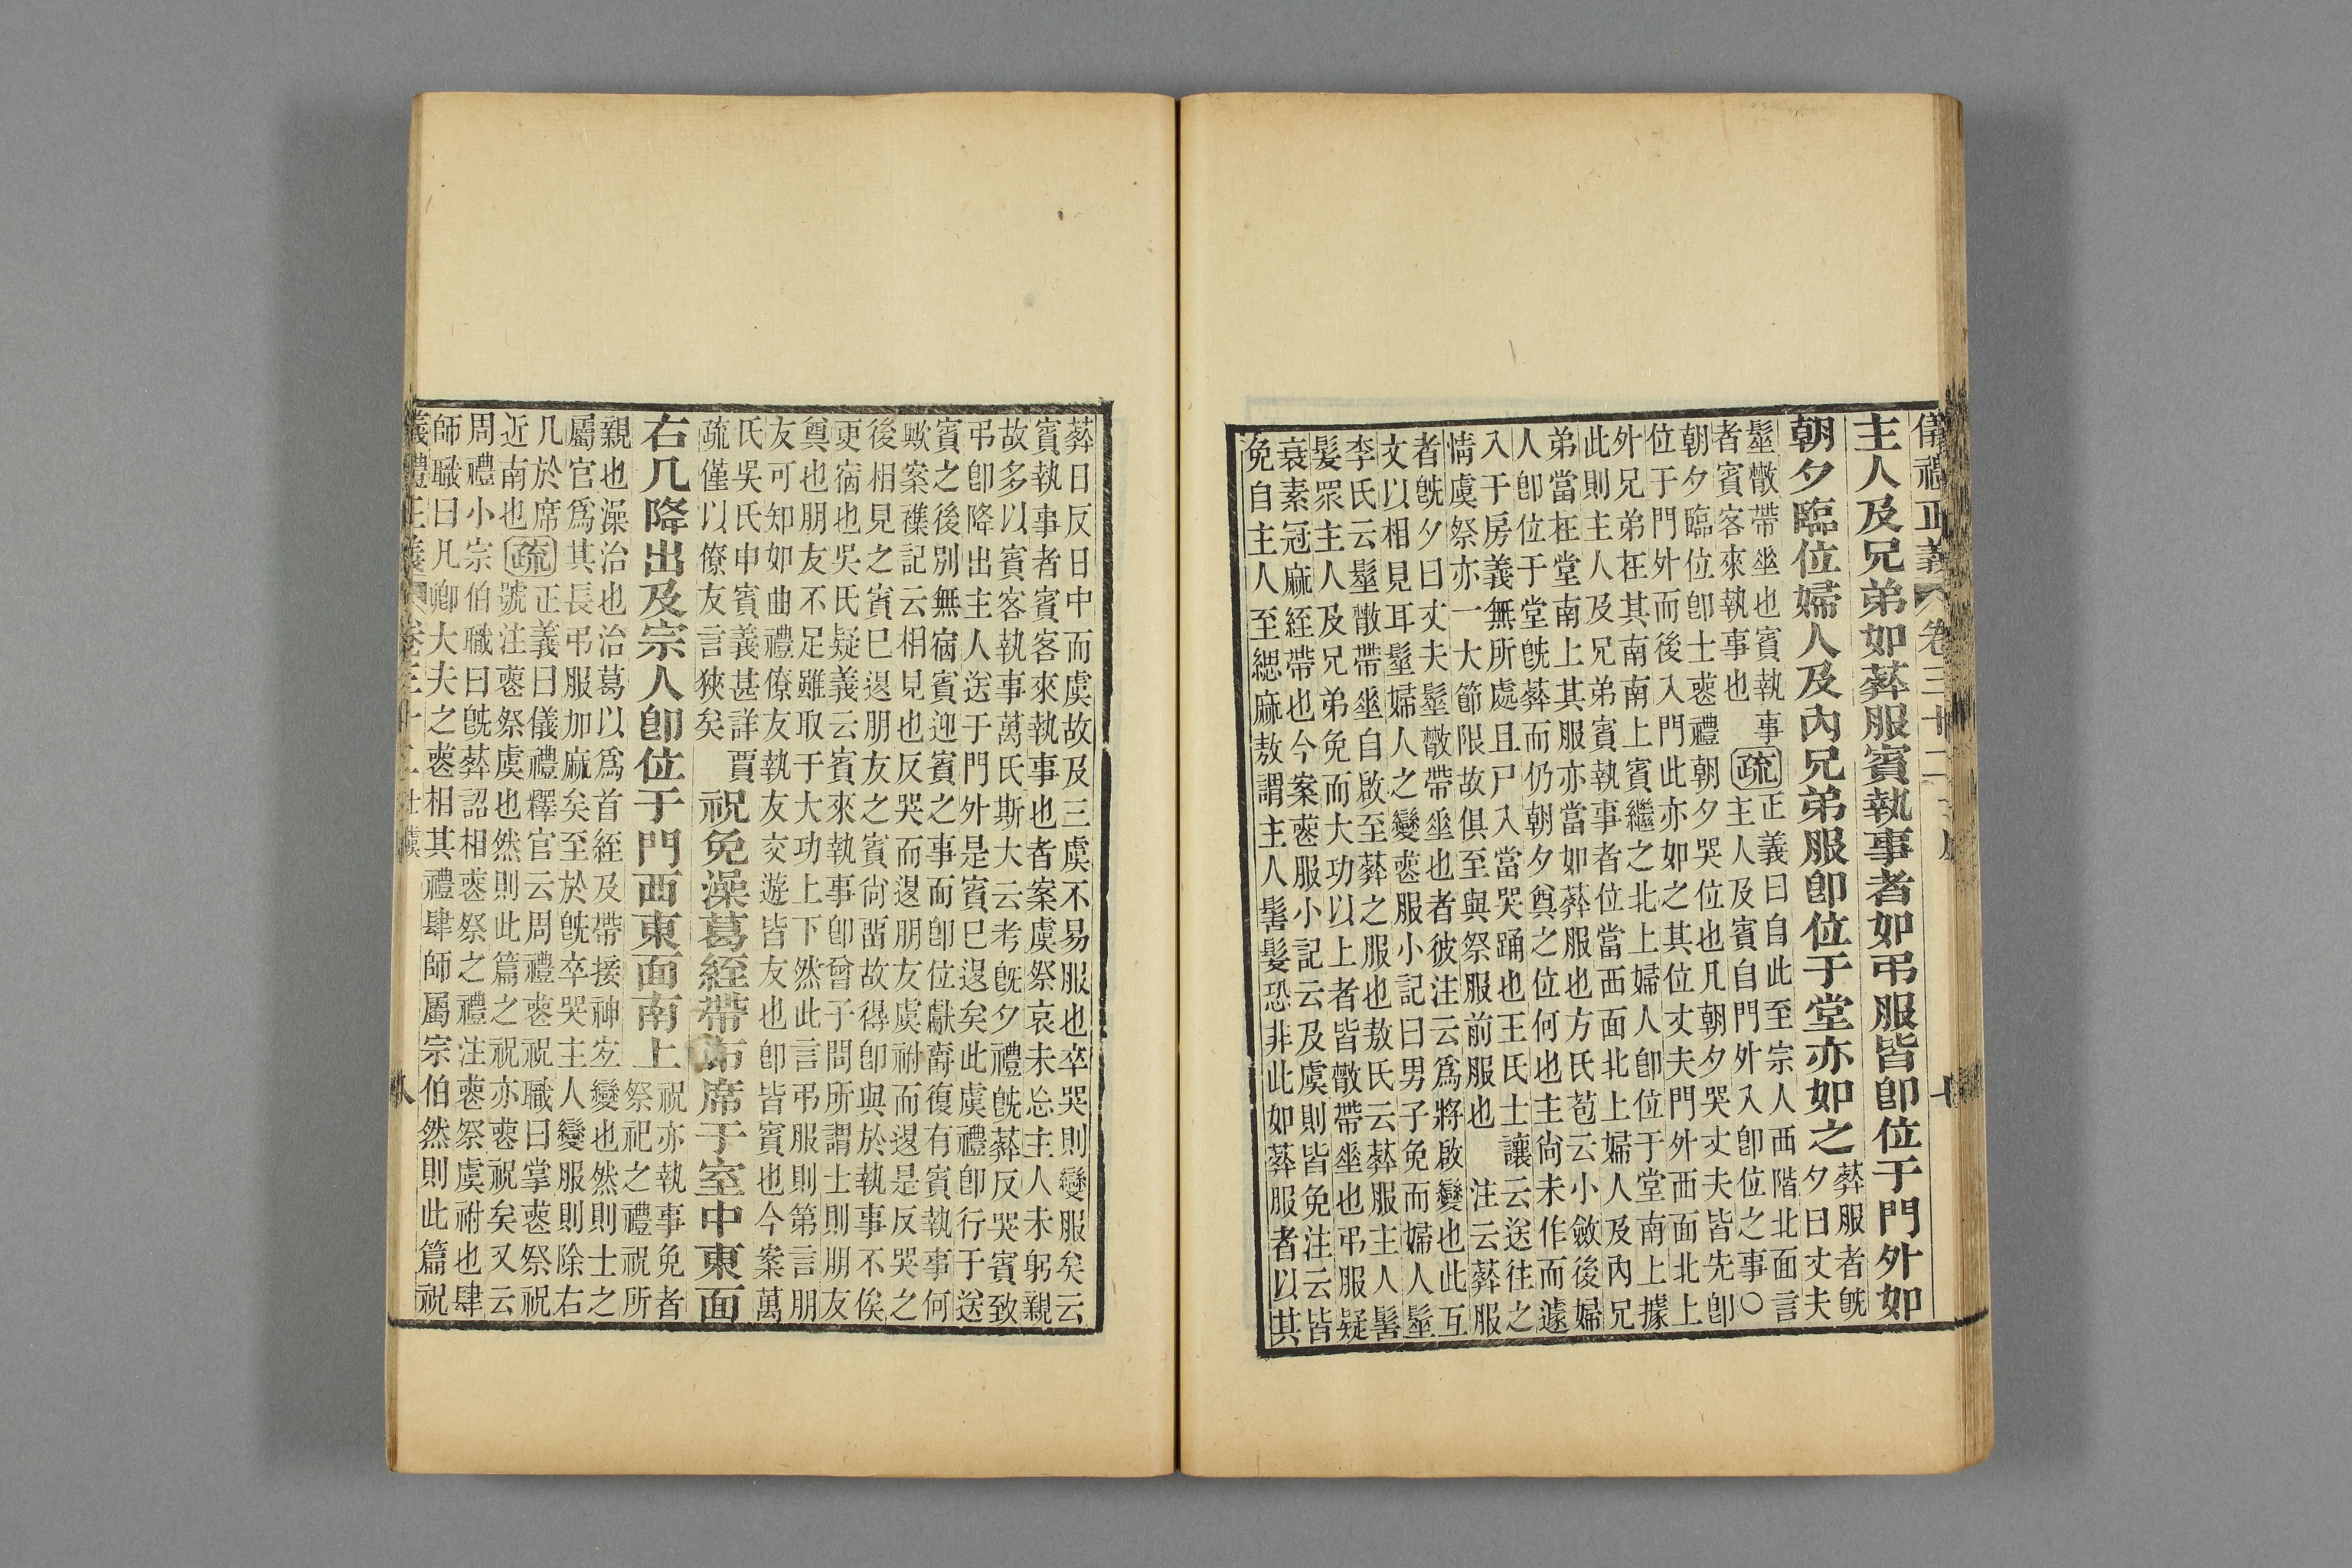 儀禮正義 卷三十二 七
主人及兄弟如葬服賓執事者如弔服皆卽位于門外如
朝夕臨位婦人及內兄弟服卽位于堂亦如之葬服者旣
夕曰丈夫
髽散帶垂也賓執事
者賓客來執事也
疏正義曰自此至宗人西階北面言
主人及賓自門外入卽位之事○
朝夕臨位卽士喪禮朝夕哭位也凡朝夕哭丈夫皆先卽
位于門外而後入門此亦如之其位丈夫門外西面北上
外兄弟在其南南上賓繼之北上婦人卽位于堂南上據
此則主人及兄弟賓執事者位當西面北上婦人及內兄
弟當在堂南上其服亦當如葬服也方氏苞云小斂後婦
人卽位于堂旣葬而仍朝夕奠之位何也主尙未作而遽
入于房義無所處且尸入當哭踊也王氏士讓云送往之
情虞祭亦一大節限故俱至與祭服前服也 注云葬服
者旣夕曰丈夫髽散帶垂也者彼注云爲將啟變也此互
文以相見耳髽婦人之變喪服小記曰男子免而婦人髽
李氏云髽散帶垂自啟至葬之服也敖氏云葬服主人髺
髮眾主人及兄弟免而大功以上者皆散帶垂也弔服疑
衰素冠麻絰帶也今案喪服小記云及虞則皆免注云皆
免自主人至緦麻敖謂主人髺髮恐非此如葬服者以其
葬日反日中而虞故及三虞不易服也卒哭則變服矣云
賓執事者賓客來執事也者案虞祭哀未忘主人未躬親
故多以賓客執事萬氏斯大云考旣夕禮旣葬反哭賓致
弔卽降出主人送于門外是賓已退矣此虞禮卽行于送
賓之後別無宿賓迎賓之事而卽位獻齎復有賓執事何
歟案襍記云相見也反哭而退朋友虞祔而退是反哭之
後相見之賓已退朋友之賓尙留故得卽與於執事不俟
更宿也吳氏疑義云賓來執事卽曾子問所謂士則朋友
奠也朋友不足雖取于大功上下然此言弔服則第言朋
友可知如曲禮僚友執友交遊皆友也卽皆賓也今案萬
氏吳氏申賓義甚詳賈
疏僅以僚友言狹矣
祝免澡葛絰帶布席于室中東面
右几降出及宗人卽位于門西東面南上祝亦執事免者
祭祀之禮祝所
親也澡治也治葛以爲首絰及帶接神宜變也然則士之
屬官爲其長弔服加麻矣至於旣卒哭主人變服則除右
几於席
近南也
疏正義曰儀禮釋官云周禮喪祝職曰掌喪祭祝
號注喪祭虞也然則此篇之祝亦喪祝矣又云
周禮小宗伯職曰旣葬詔相喪祭之禮注喪祭虞祔也肆
師職曰凡卿大夫之喪相其禮肆師屬宗伯然則此篇祝
儀禮正義 卷三十二 士虞 八